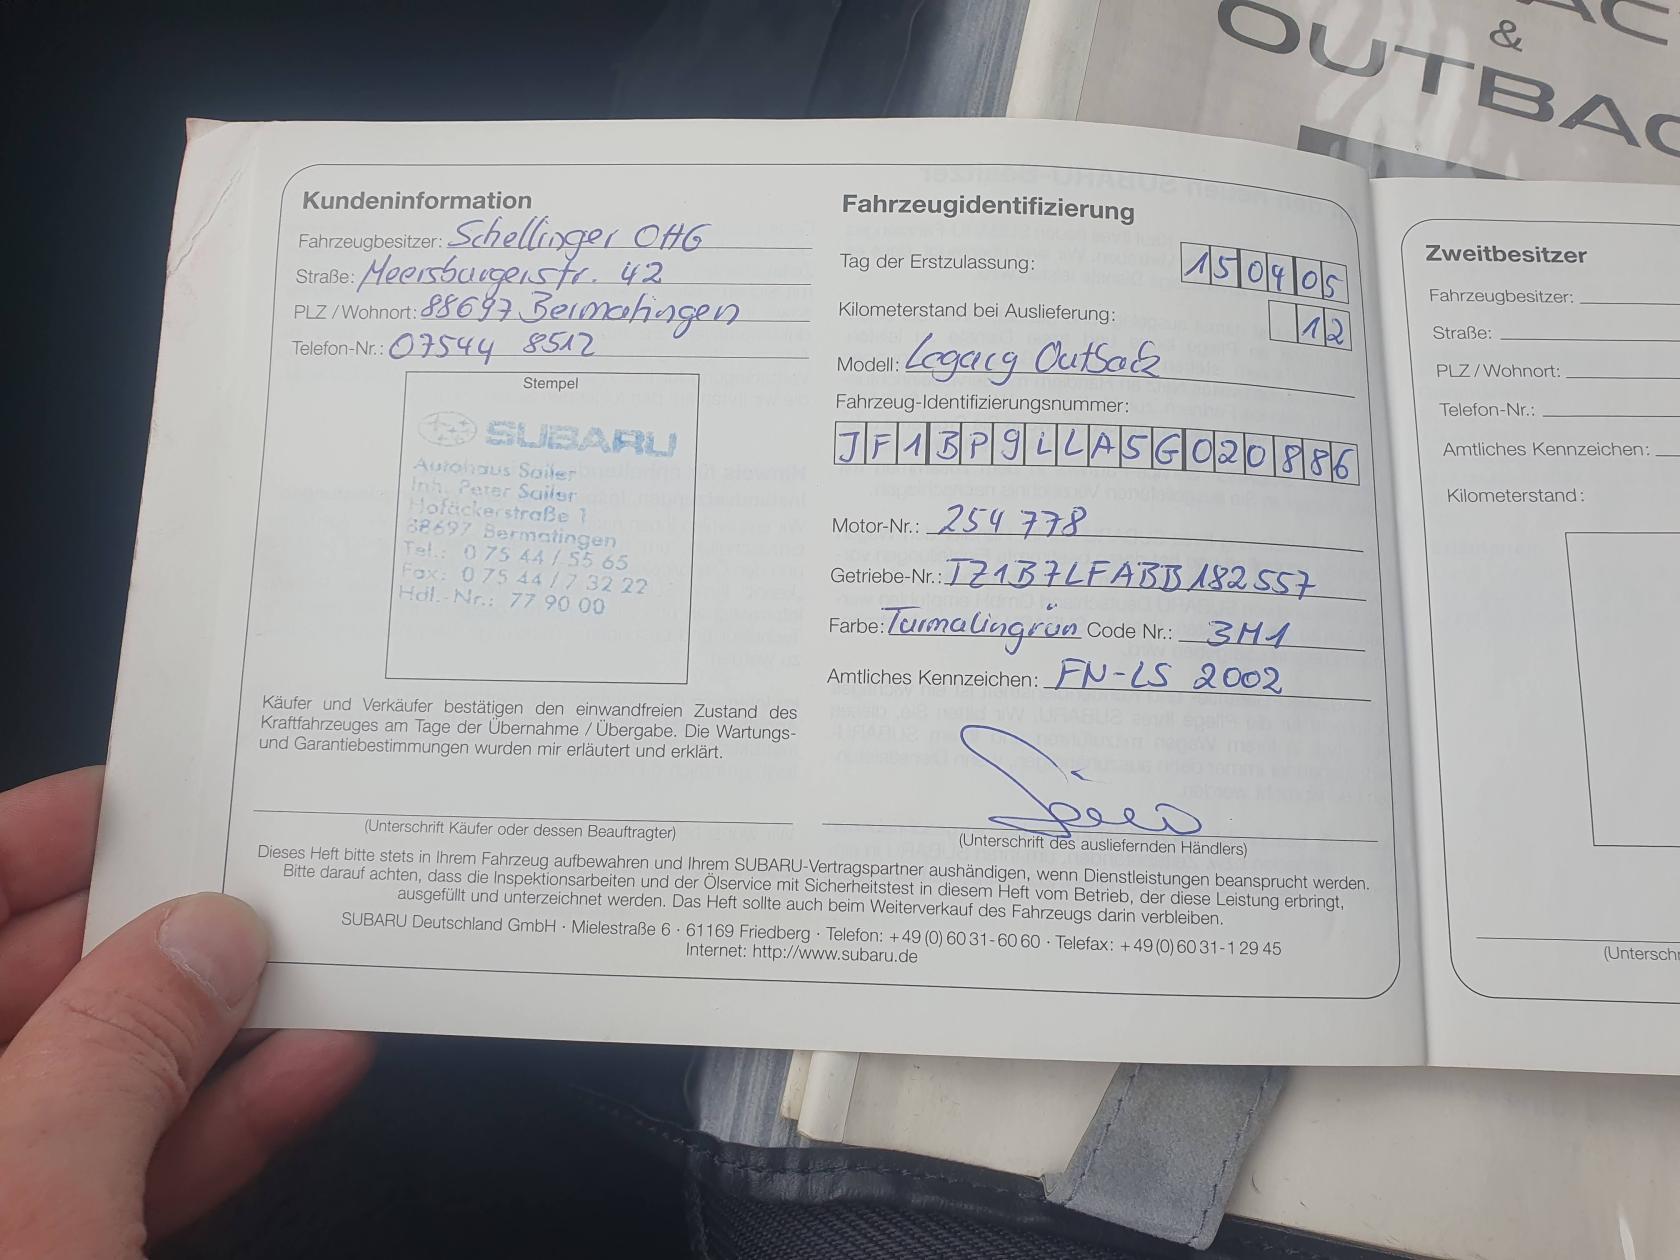 & 
OUTBAC
Kundeninformation
Fahrzeugbesitzer: Schellinger OHG
Straße: Meersburgerstr. 42
PLZ / Wohnort: 88697 Bermatingen
Telefon-Nr.: 07544 8512
Stempel
SUBARU
Autohaus Sailer
Inh. Peter Sailer
Hofäckerstraße 1
88697 Bermatingen
Tel.: 0 75 44 / 55 65
Fax: 0 75 44 / 7 32 22
Hdl.-Nr.: 77 90 00
Käufer und Verkäufer bestätigen den einwandfreien Zustand des
Kraftfahrzeuges am Tage der Übernahme / Übergabe. Die Wartungs-
und Garantiebestimmungen wurden mir erläutert und erklärt.
(Unterschrift Käufer oder dessen Beauftragter)
Fahrzeugidentifizierung
Tag der Erstzulassung: 150405
Kilometerstand bei Auslieferung: 12
Modell: Legacy Outback
Fahrzeug-Identifizierungsnummer:
JF1BP9LLA5G020886
Motor-Nr.: 254 778
Getriebe-Nr.: TZ1B7LFABB182557
Farbe: Turmalingrün Code Nr.: 3M1
Amtliches Kennzeichen: FN-LS 2002
(Unterschrift des ausliefernden Händlers)
Dieses Heft bitte stets in Ihrem Fahrzeug aufbewahren und Ihrem SUBARU-Vertragspartner aushändigen, wenn Dienstleistungen beansprucht werden.
Bitte darauf achten, dass die Inspektionsarbeiten und der Ölservice mit Sicherheitstest in diesem Heft vom Betrieb, der diese Leistung erbringt,
ausgefüllt und unterzeichnet werden. Das Heft sollte auch beim Weiterverkauf des Fahrzeugs darin verbleiben.
SUBARU Deutschland GmbH · Mielestraße 6 · 61169 Friedberg · Telefon: +49 (0) 60 31-60 60 · Telefax: +49 (0) 60 31-1 29 45
Internet: http://www.subaru.de
Zweitbesitzer
Fahrzeugbesitzer:
Straße:
PLZ / Wohnort:
Telefon-Nr.:
Amtliches Kennzeichen:
Kilometerstand:
(Unterschr